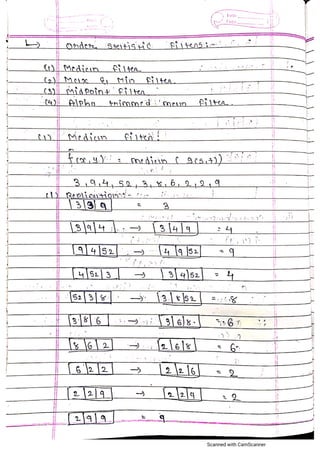 Order Statistic Filters :-
(1) Median Filter.
(2) Max & Min Filter.
(3) Midpoint Filter.
(4) Alpha trimmed mean Filter.
(1) Median Filter :
f(x,y) = median { g(s,t) }
3, 9, 4, 52, 3, 8, 6, 2, 2, 9
(1) Replication :-
3 3 9 = 3
3 9 4 → 3 4 9 = 4
9 4 52 → 4 9 52 = 9
4 52 3 → 3 4 52 = 4
52 3 8 → 3 8 52 = 8
3 8 6 → 3 6 8 = 6
8 6 2 → 2 6 8 = 6
6 2 2 → 2 2 6 = 2
2 2 9 → 2 2 9 = 2
2 9 9 = 9
Scanned with CamScanner